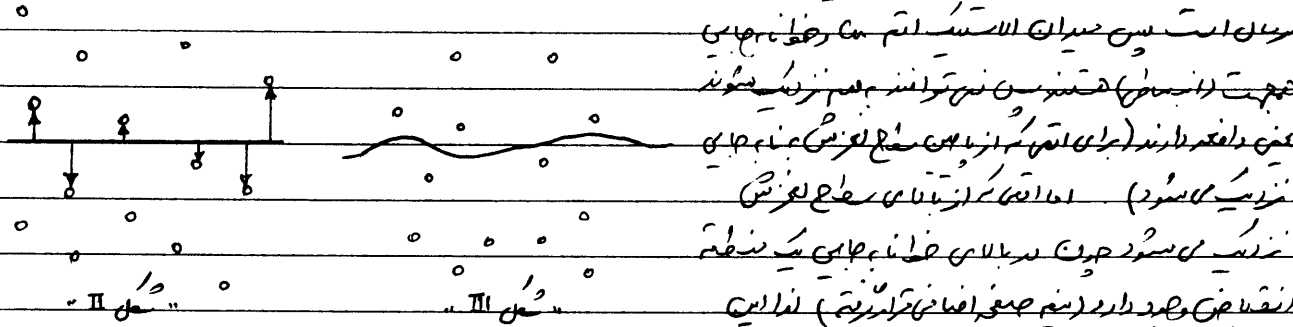 نرمال است پس میدان الاستیک اتم ها و خط نابه‌جایی
همجهت (انبساطی) هستند پس نمی توانند به هم نزدیک شوند
یعنی دافعه دارند (برای اتمی که از پایین سطح لغزش به نابه‌جایی
نزدیک می شود) . اما اتمی که از بالای سطح لغزش
نزدیک می شود چون در بالای خط نابه‌جایی یک منطقه
انقباض وجود دارد (نیم صفحه اضافی قرار گرفته) لذا این
"شکل II"
"شکل III"